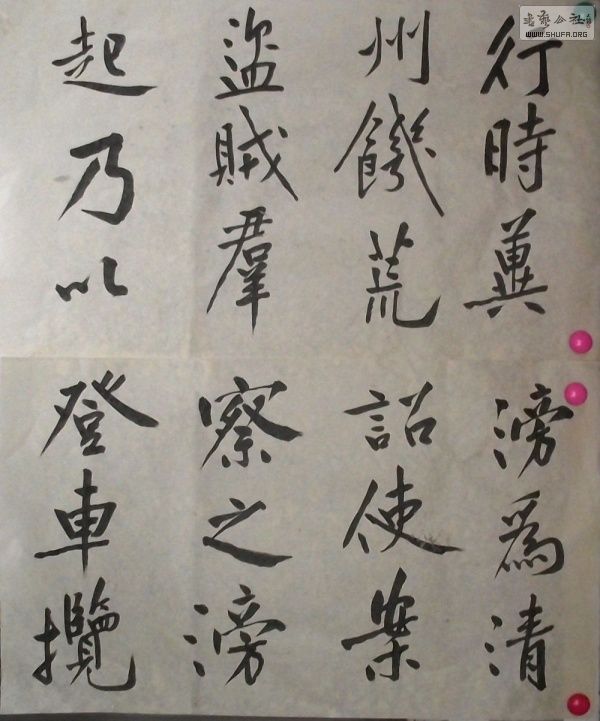 行時冀
州饑荒
盜賊羣
起乃以
滂爲清
詔使案
察之滂
登車攬
WWW.SHUFA.ORG